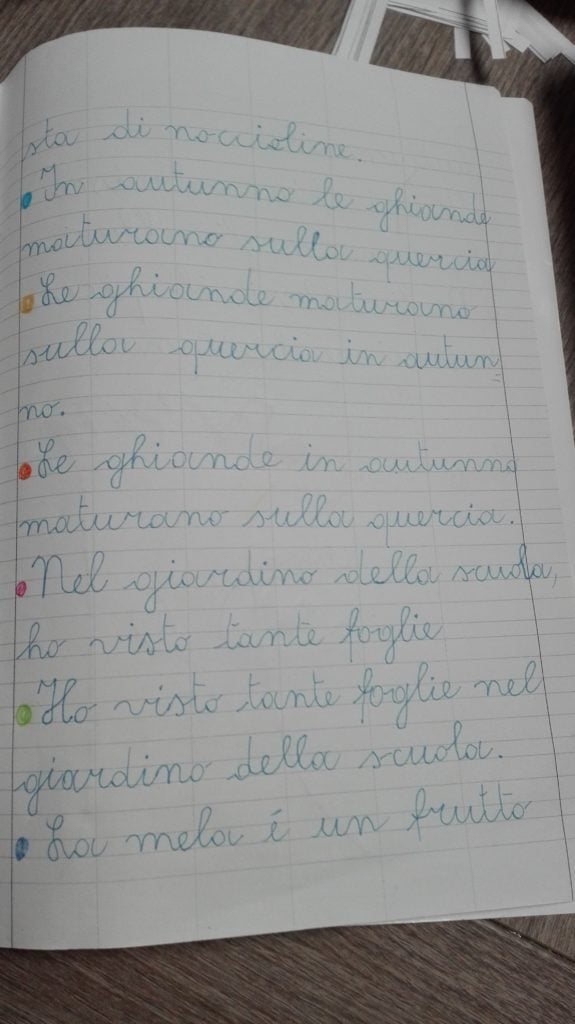 sta di noccioline.
In autunno le ghiande
maturano sulla quercia
Le ghiande maturano
sulla quercia in autun=
no.
Le ghiande in autunno
maturano sulla quercia.
Nel giardino della scuola,
ho visto tante foglie
Ho visto tante foglie nel
giardino della scuola.
La mela é un frutto